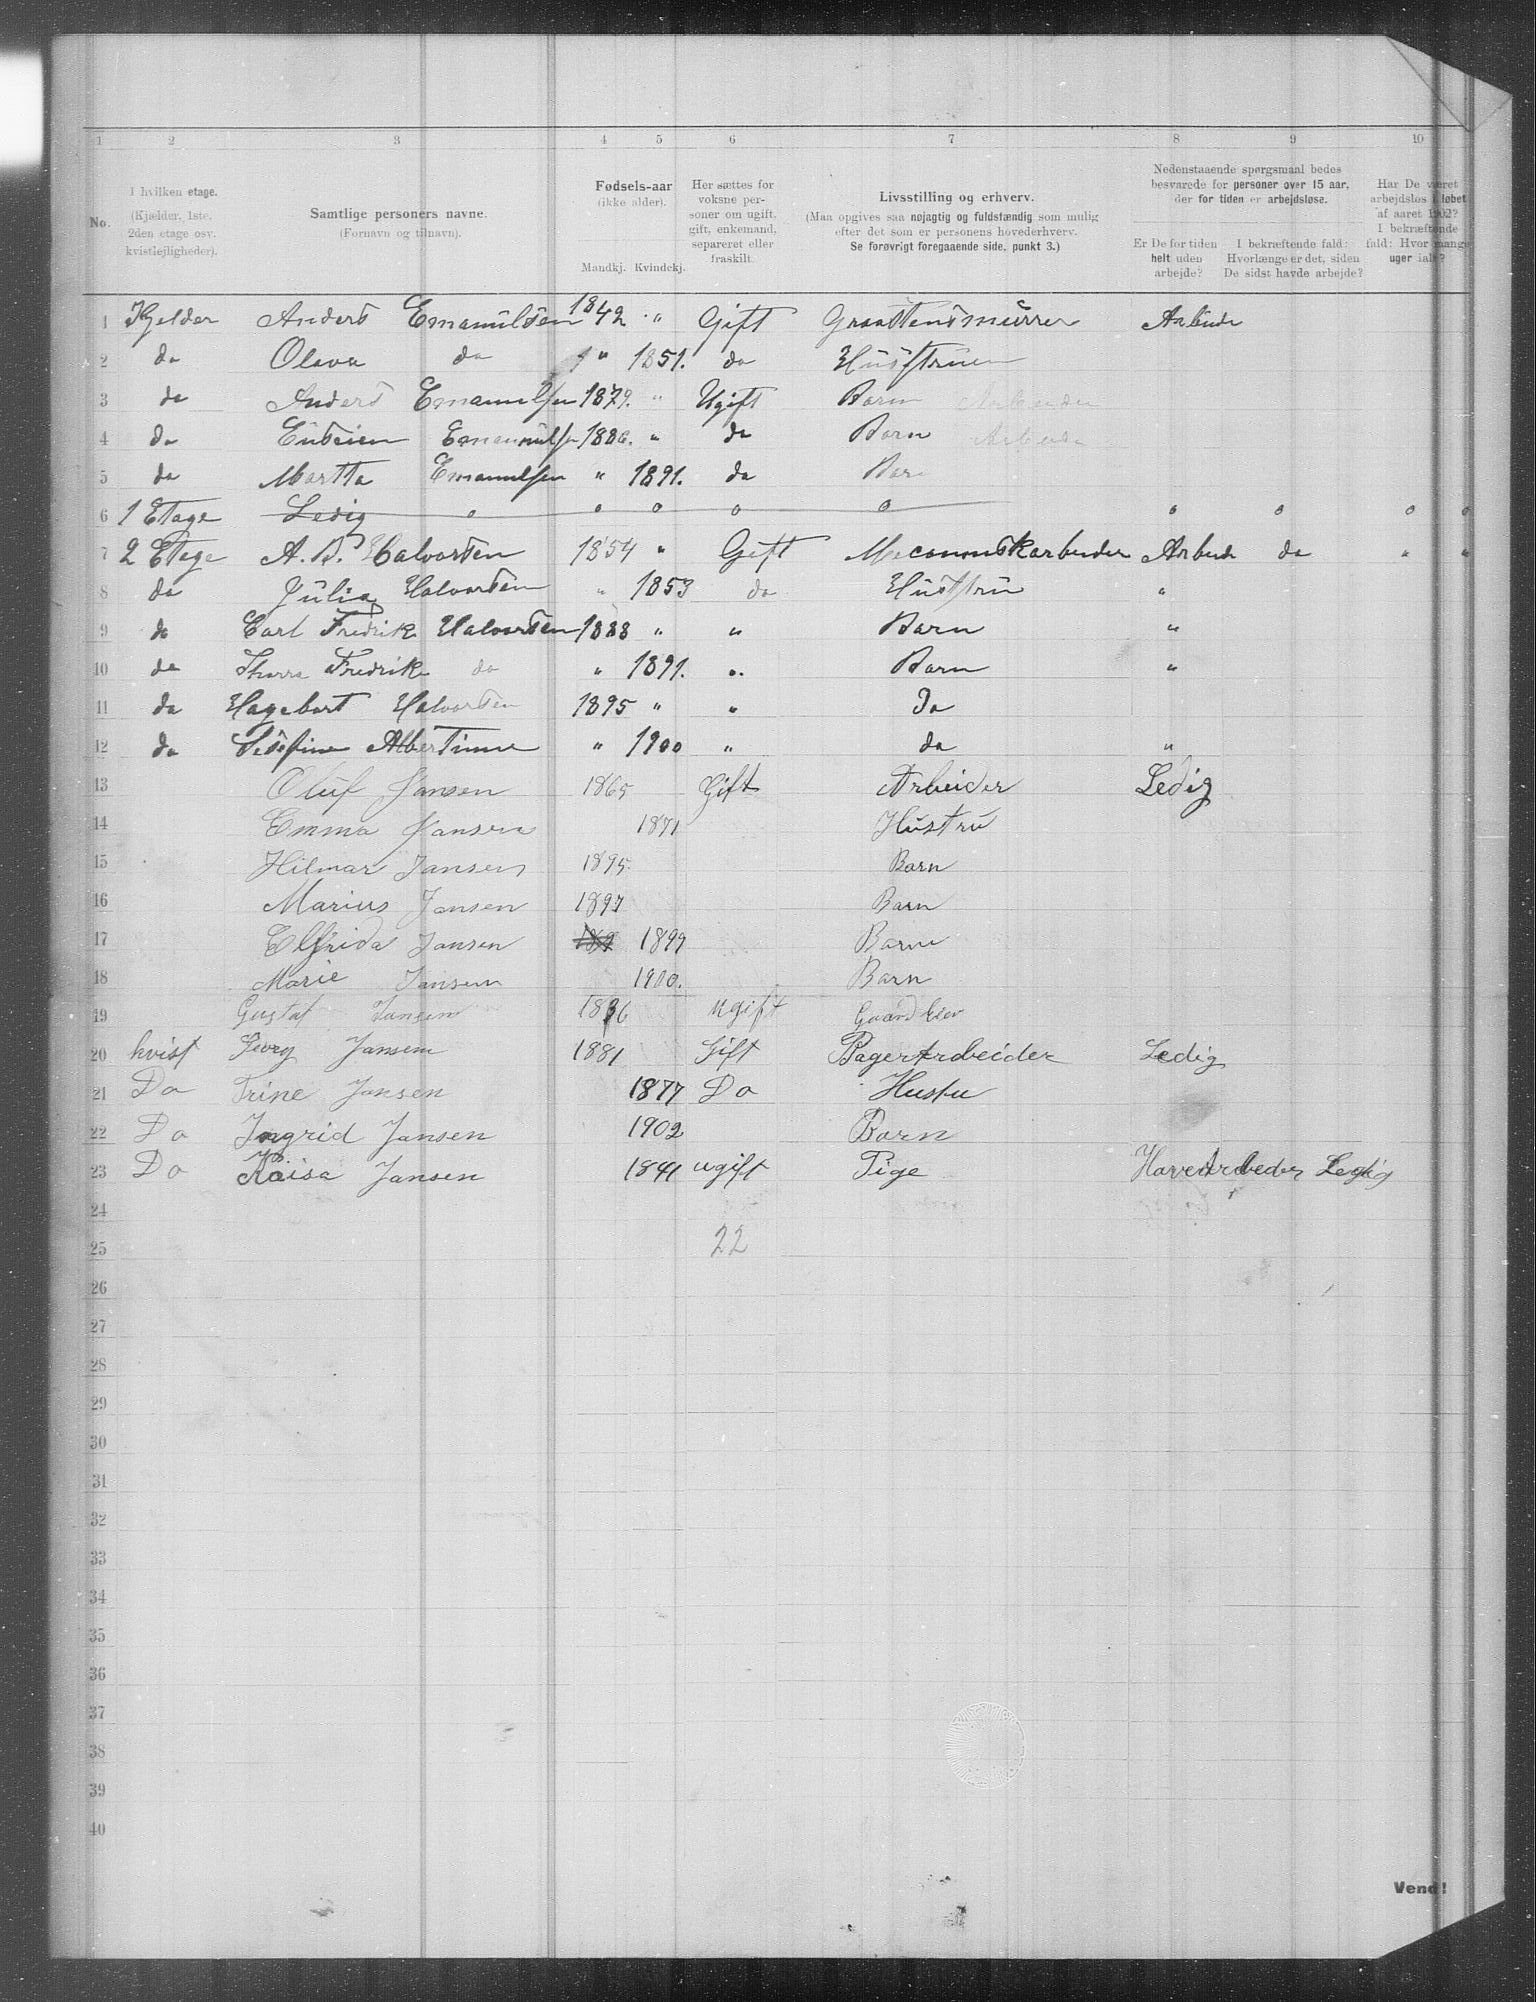 1 2 3 4 5 6 7 8 9 10
No.
I hvilken etage.
(Kjælder, 1ste, 2den etage osv. kvistlejligheder).
Samtlige personers navne.
(Fornavn og tilnavn).
Fødsels-aar
(ikke alder).
Mandkj. Kvindekj.
Her sættes for voksne personer om ugift, gift, enkemand, separeret eller fraskilt.
Livsstilling og erhverv.
(Maa opgives saa nøjagtig og fuldstændig som mulig efter det som er personens hovederhverv.
Se forøvrigt foregaaende side, punkt 3.)
Nedenstaaende spørgsmaal bedes besvarede for personer over 15 aar, der for tiden er arbejdsløse.
Er De for tiden helt uden arbejde?
I bekræftende fald: Hvorlænge er det, siden De sidst havde arbejde?
Har De været arbejdsløs i løbet af aaret 1902? I bekræftende fald: Hvor mange uger ialt?
1 Kjelder Anders Emanuilsen 1842 " Gift Graastensmürrer Arbude
2 do Olava do " 1851. do Hüsstruen
3 do Anders Emanuilsen 1879. " Ugift Barn Arbeider
4 do Emanuilsen 1886. " do Barn
5 do Martta Emanuelsen " 1891. do Bar
6 1 Etage Ledig " " " " " " " " "
7 2 Etage A. Halvorsen 1854 " Gift Mecannskarbeider Arbude do " "
8 do Julia Halvorsen " 1853 do Hüsstru "
9 do Carl Fredrik Halvorsen 1888 " " Barn "
10 do Thorra Fredrik do " 1891. " Barn "
11 do Hagebart Halvorsen 1895 " " Do
12 do Albertinne " 1900 " do "
13 Oluf Jansen 1865 Gift Arbeider Ledig
14 Emma Jansen 1871 Hüstru
15 Hilmar Jansen 1895 Barn
16 Marius Jansen 1897 Barn
17 Elfrida Jansen 1899 Barn
18 Marie Jansen 1900. Barn
19 Gustaf Jansen 1836 ugift
20 kvist Georg Jansen 1881 Gift BagerArbeider Ledig
21 Do Trine Jansen 1877 Do Hustu
22 Do Ingrid Jansen 1902 Barn
23 Do Raisa Jansen 1841 ugift Pige HaveArbeder Ledig
24
25 22
26
27
28
29
30
31
32
33
34
35
36
37
38
39
40
Vend!